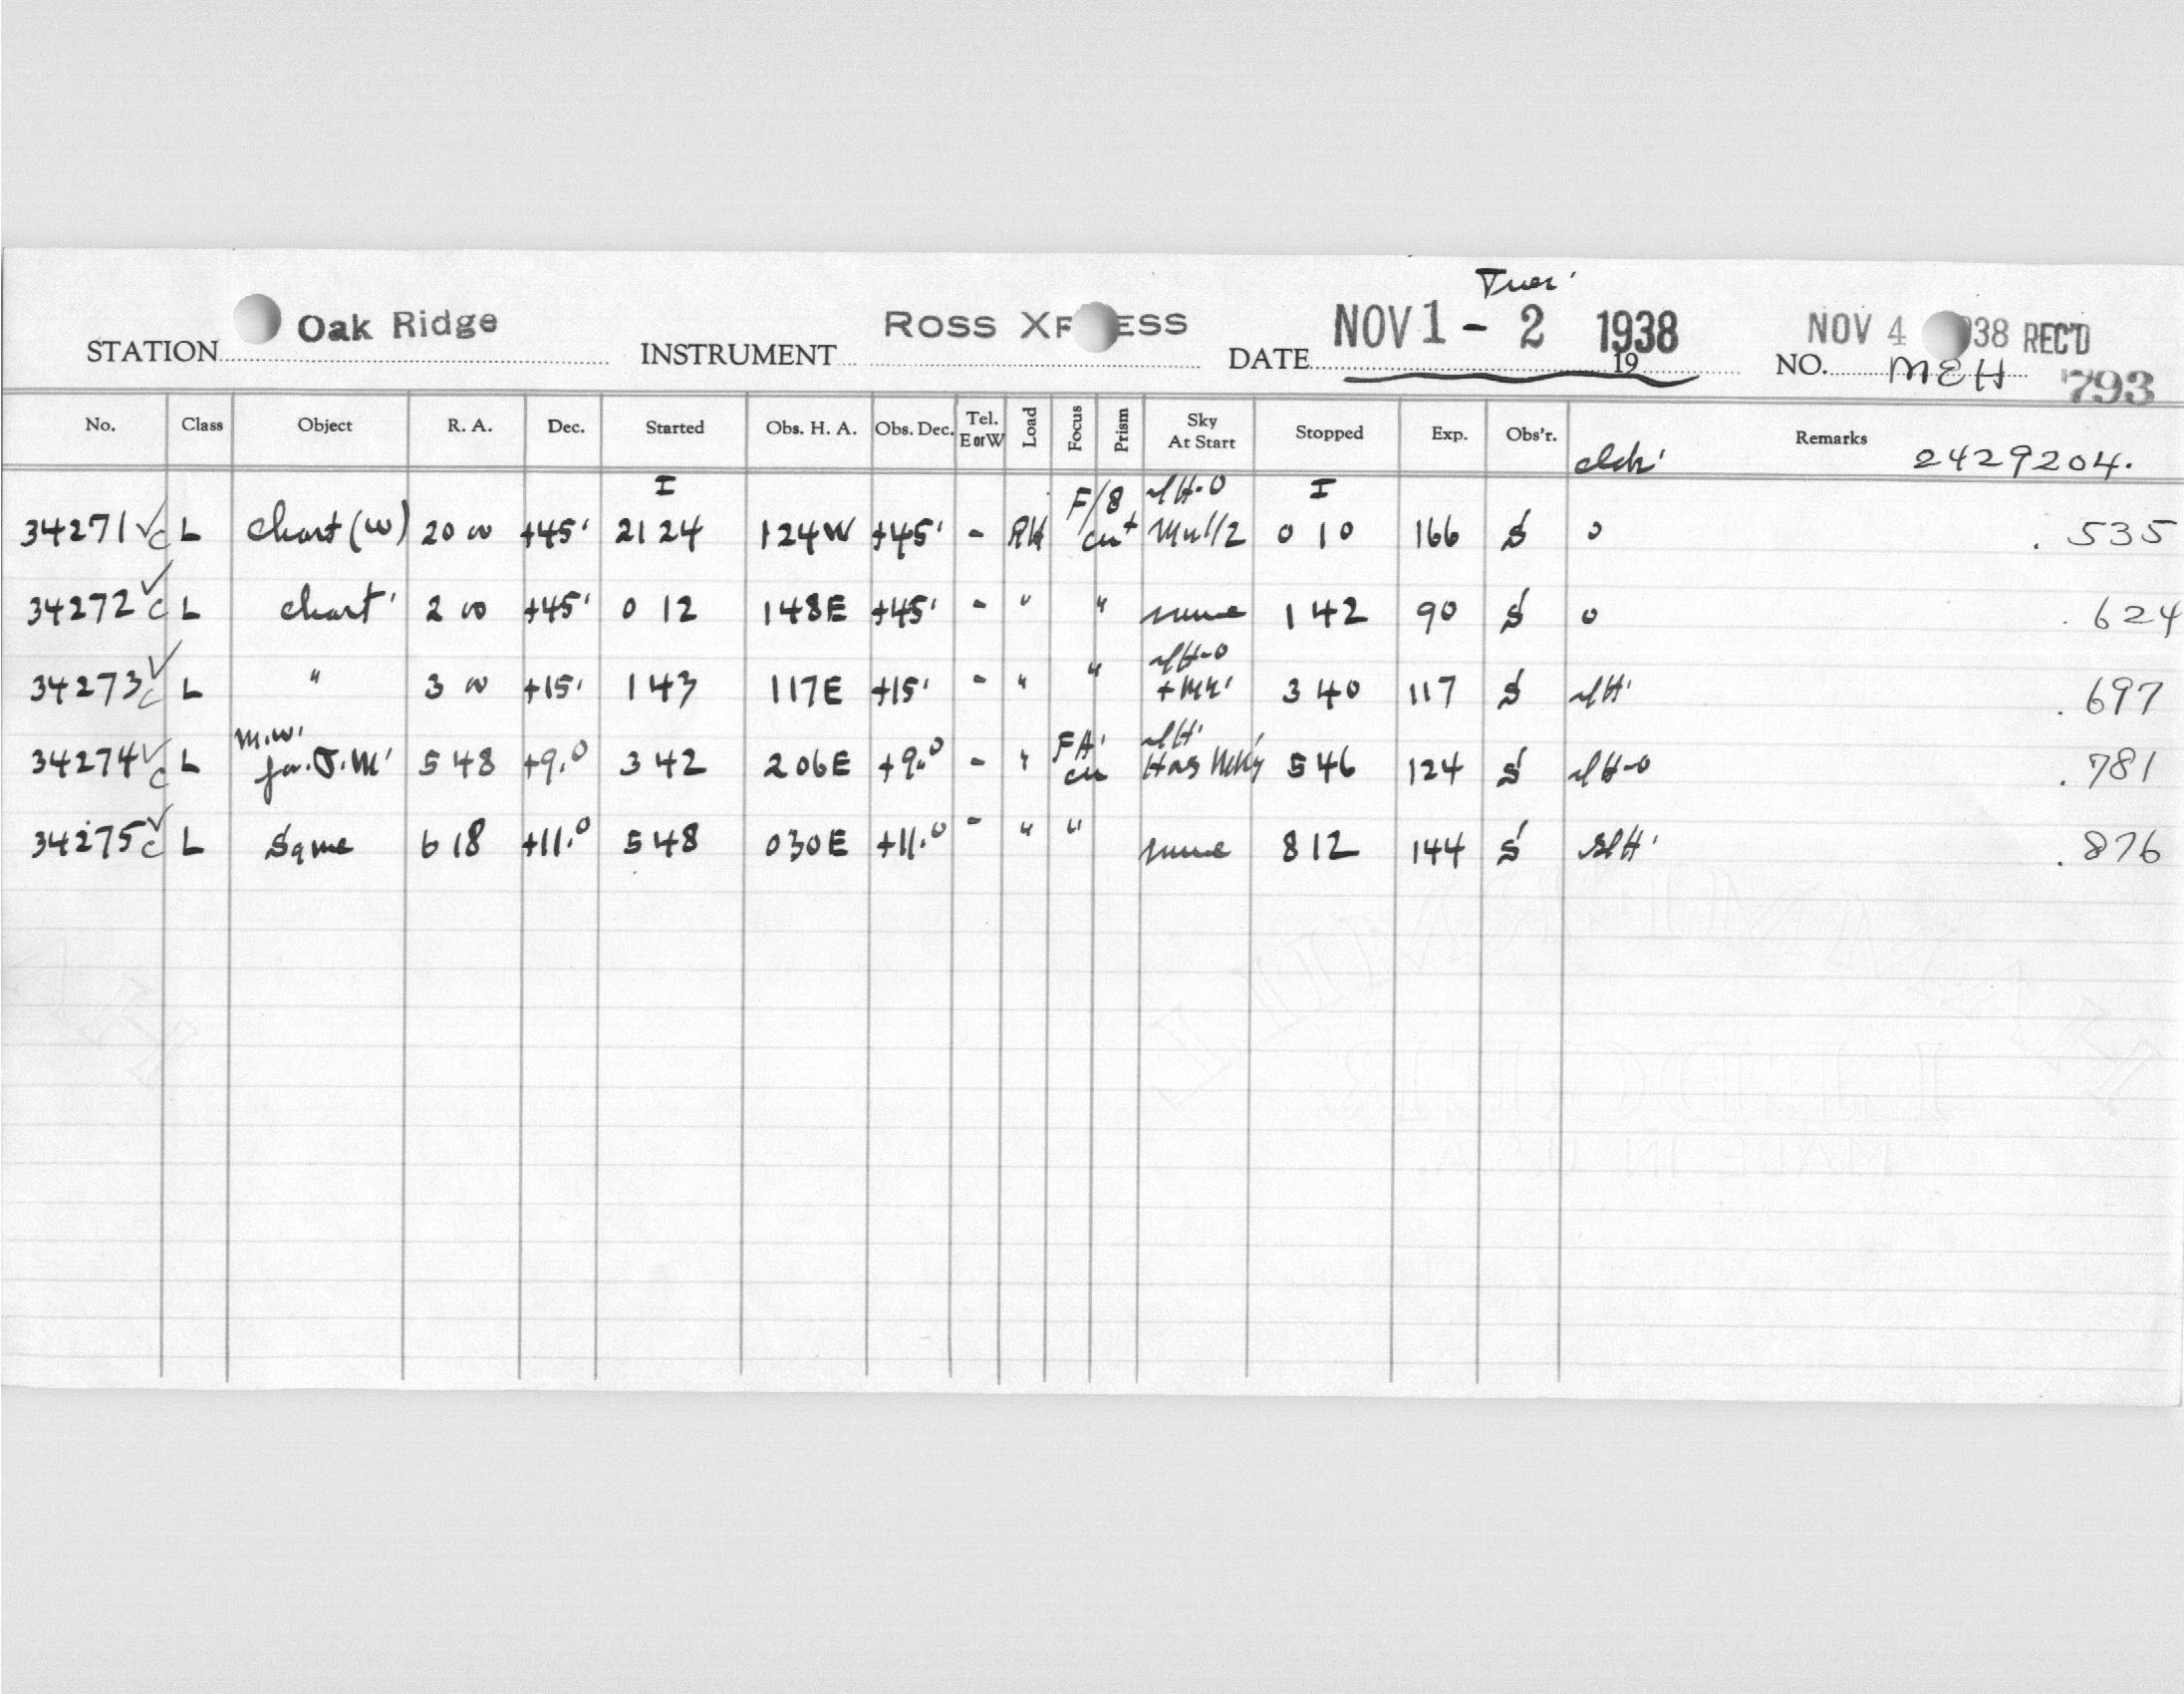 Tues'
STATION Oak Ridge INSTRUMENT ROSS XPRESS DATE NOV 1 - 2 1938 19 NO. MEH NOV 4 1938 REC'D 793
No. Class Object R. A. Dec. Started Obs. H. A. Obs. Dec. Tel. E or W Load Focus Prism Sky At Start Stopped Exp. Obs'r. Remarks
2429204.
I F/8 I
34271 ✓ c L Chart (w) 20 00 +45° 21 24 1 24 W +45° - RH 0 10 166 S 0 .535
34272 ✓ c L Chart 2 00 +45° 0 12 1 48 E +45° - " " 1 42 90 S 0 .624
34273 ✓ c L " 3 00 +15° 1 43 1 17 E +15° - " " 3 40 117 S .697
M.W. FA
34274 ✓ c L for J.M. 5 48 +9.0 3 42 2 06 E +9.0 - " 5 46 124 S .781
34275 ✓ c L Same 6 18 +11.0 5 48 0 30 E +11.0 - " " 8 12 144 S .876
LEDGER
MADE IN U.S.A.